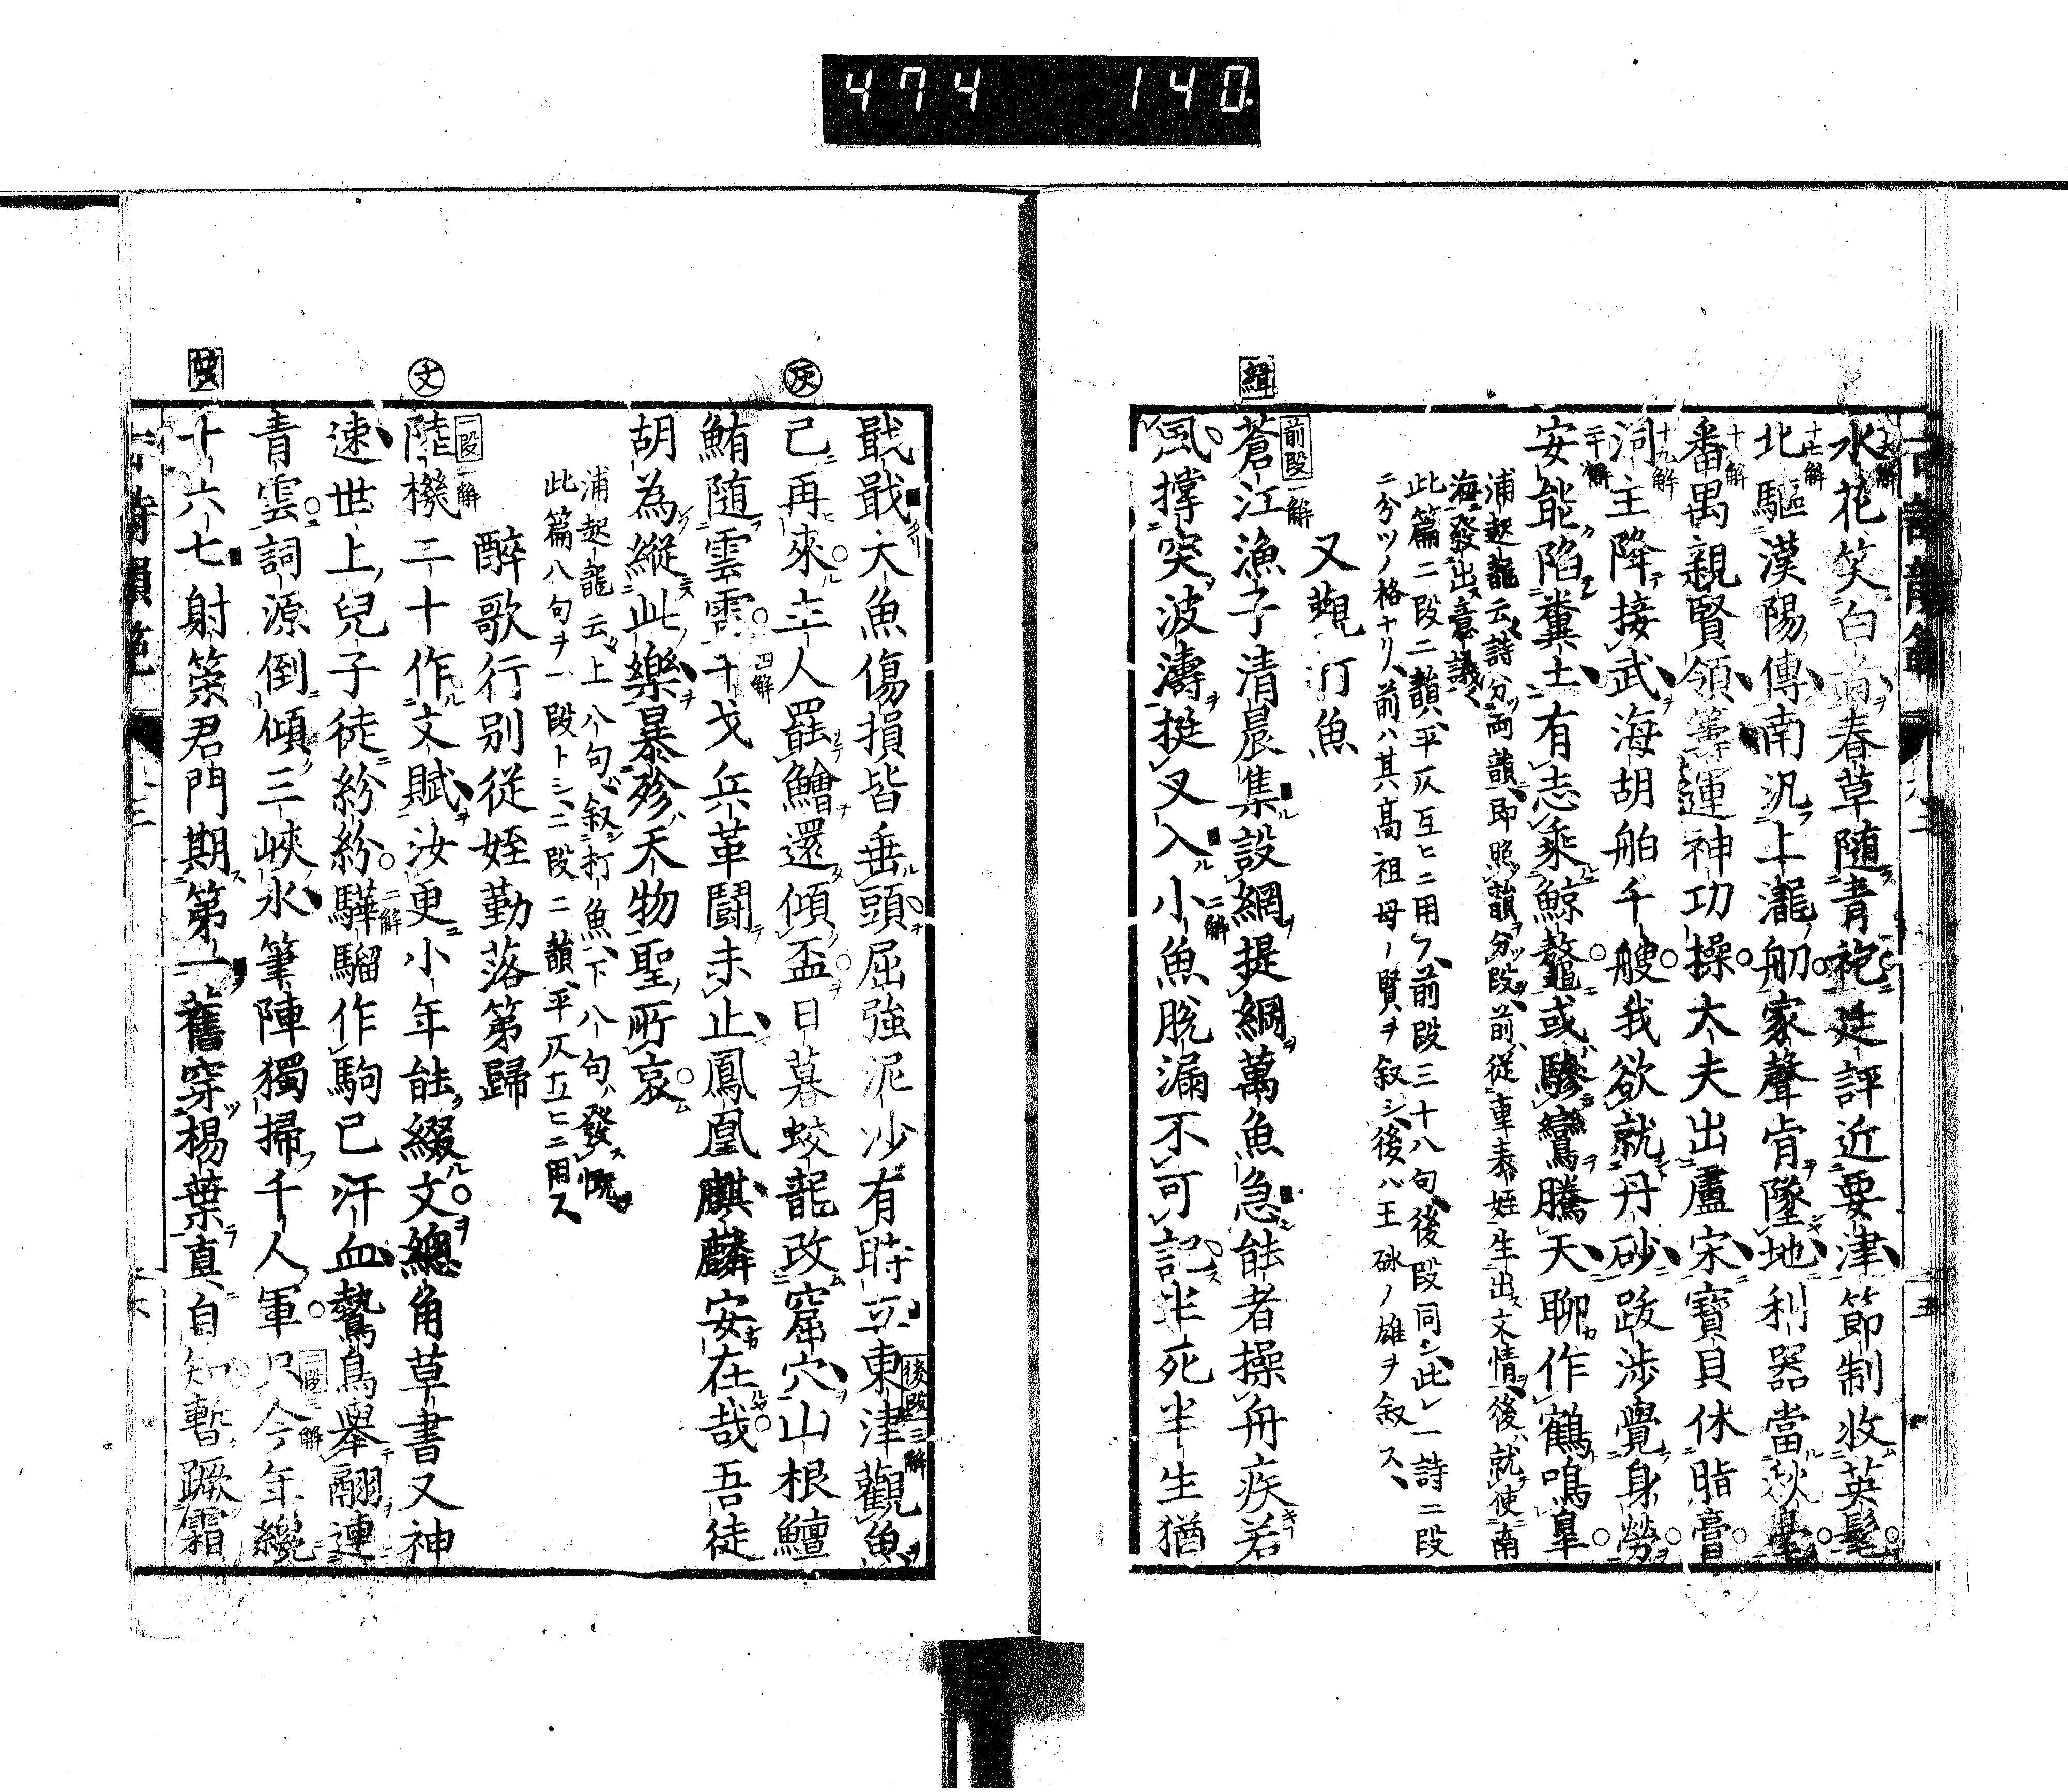 474 140
古詩韻範 卷三 五
十六解
水花笑白首春草随青袍廷評近要津節制收英髦
十七解
北驅漢陽傳南汎上瀧舠家聲肯墜地利器當秋毫
十八解
番禺親賢領籌運神功操大夫出盧宋寶貝休脂膏
十九解
洞主降接武海胡舶千艘我欲就丹砂跋渉覺身勞
二十解
安能陷糞土有志乘鯨鼇或驂鸞騰天聊作鶴鳴皐
浦起龍云詩分兩韻即照韻分段前從重表姪生出文情後就使南
海發出意議
此篇二段二韻平仄互ヒニ用フ前段三十八句後段同シ此レ一詩二段
ニ分ツノ格ナリ前ハ其高祖母ノ賢ヲ叙シ後ハ王砅ノ雄ヲ叙ス
又觀打魚
緝
前段一解
蒼江漁子清晨集設網提綱萬魚急能者操舟疾若
風撑突波濤挺叉入小魚脫漏不可記半死半生猶
二解
戢戢大魚傷損皆垂頭屈強泥沙有時立東津觀魚
後段三解
灰
已再來主人罷鱠還傾盃日暮蛟龍改窟穴山根鱣
鮪随雲雷干戈兵革鬪未止鳳凰麒麟安在哉吾徒
四解
胡為縱此樂暴殄天物聖所哀
浦起龍云上八句叙打魚下八句發慨
此篇八句ヲ一段トシ二段二韻平仄互ヒニ用ス
醉歌行别從姪勤落第歸
文
一段一解
陸機二十作文賦汝更小年能綴文總角草書又神
速世上兒子徒紛紛驊騮作駒已汗血鷙鳥舉翮連
二解
青雲詞源倒傾三峽水筆陣獨掃千人軍只今年纔
二段三解
十六七射策君門期第一舊穿楊葉真自知暫蹶霜
古詩韻範
三